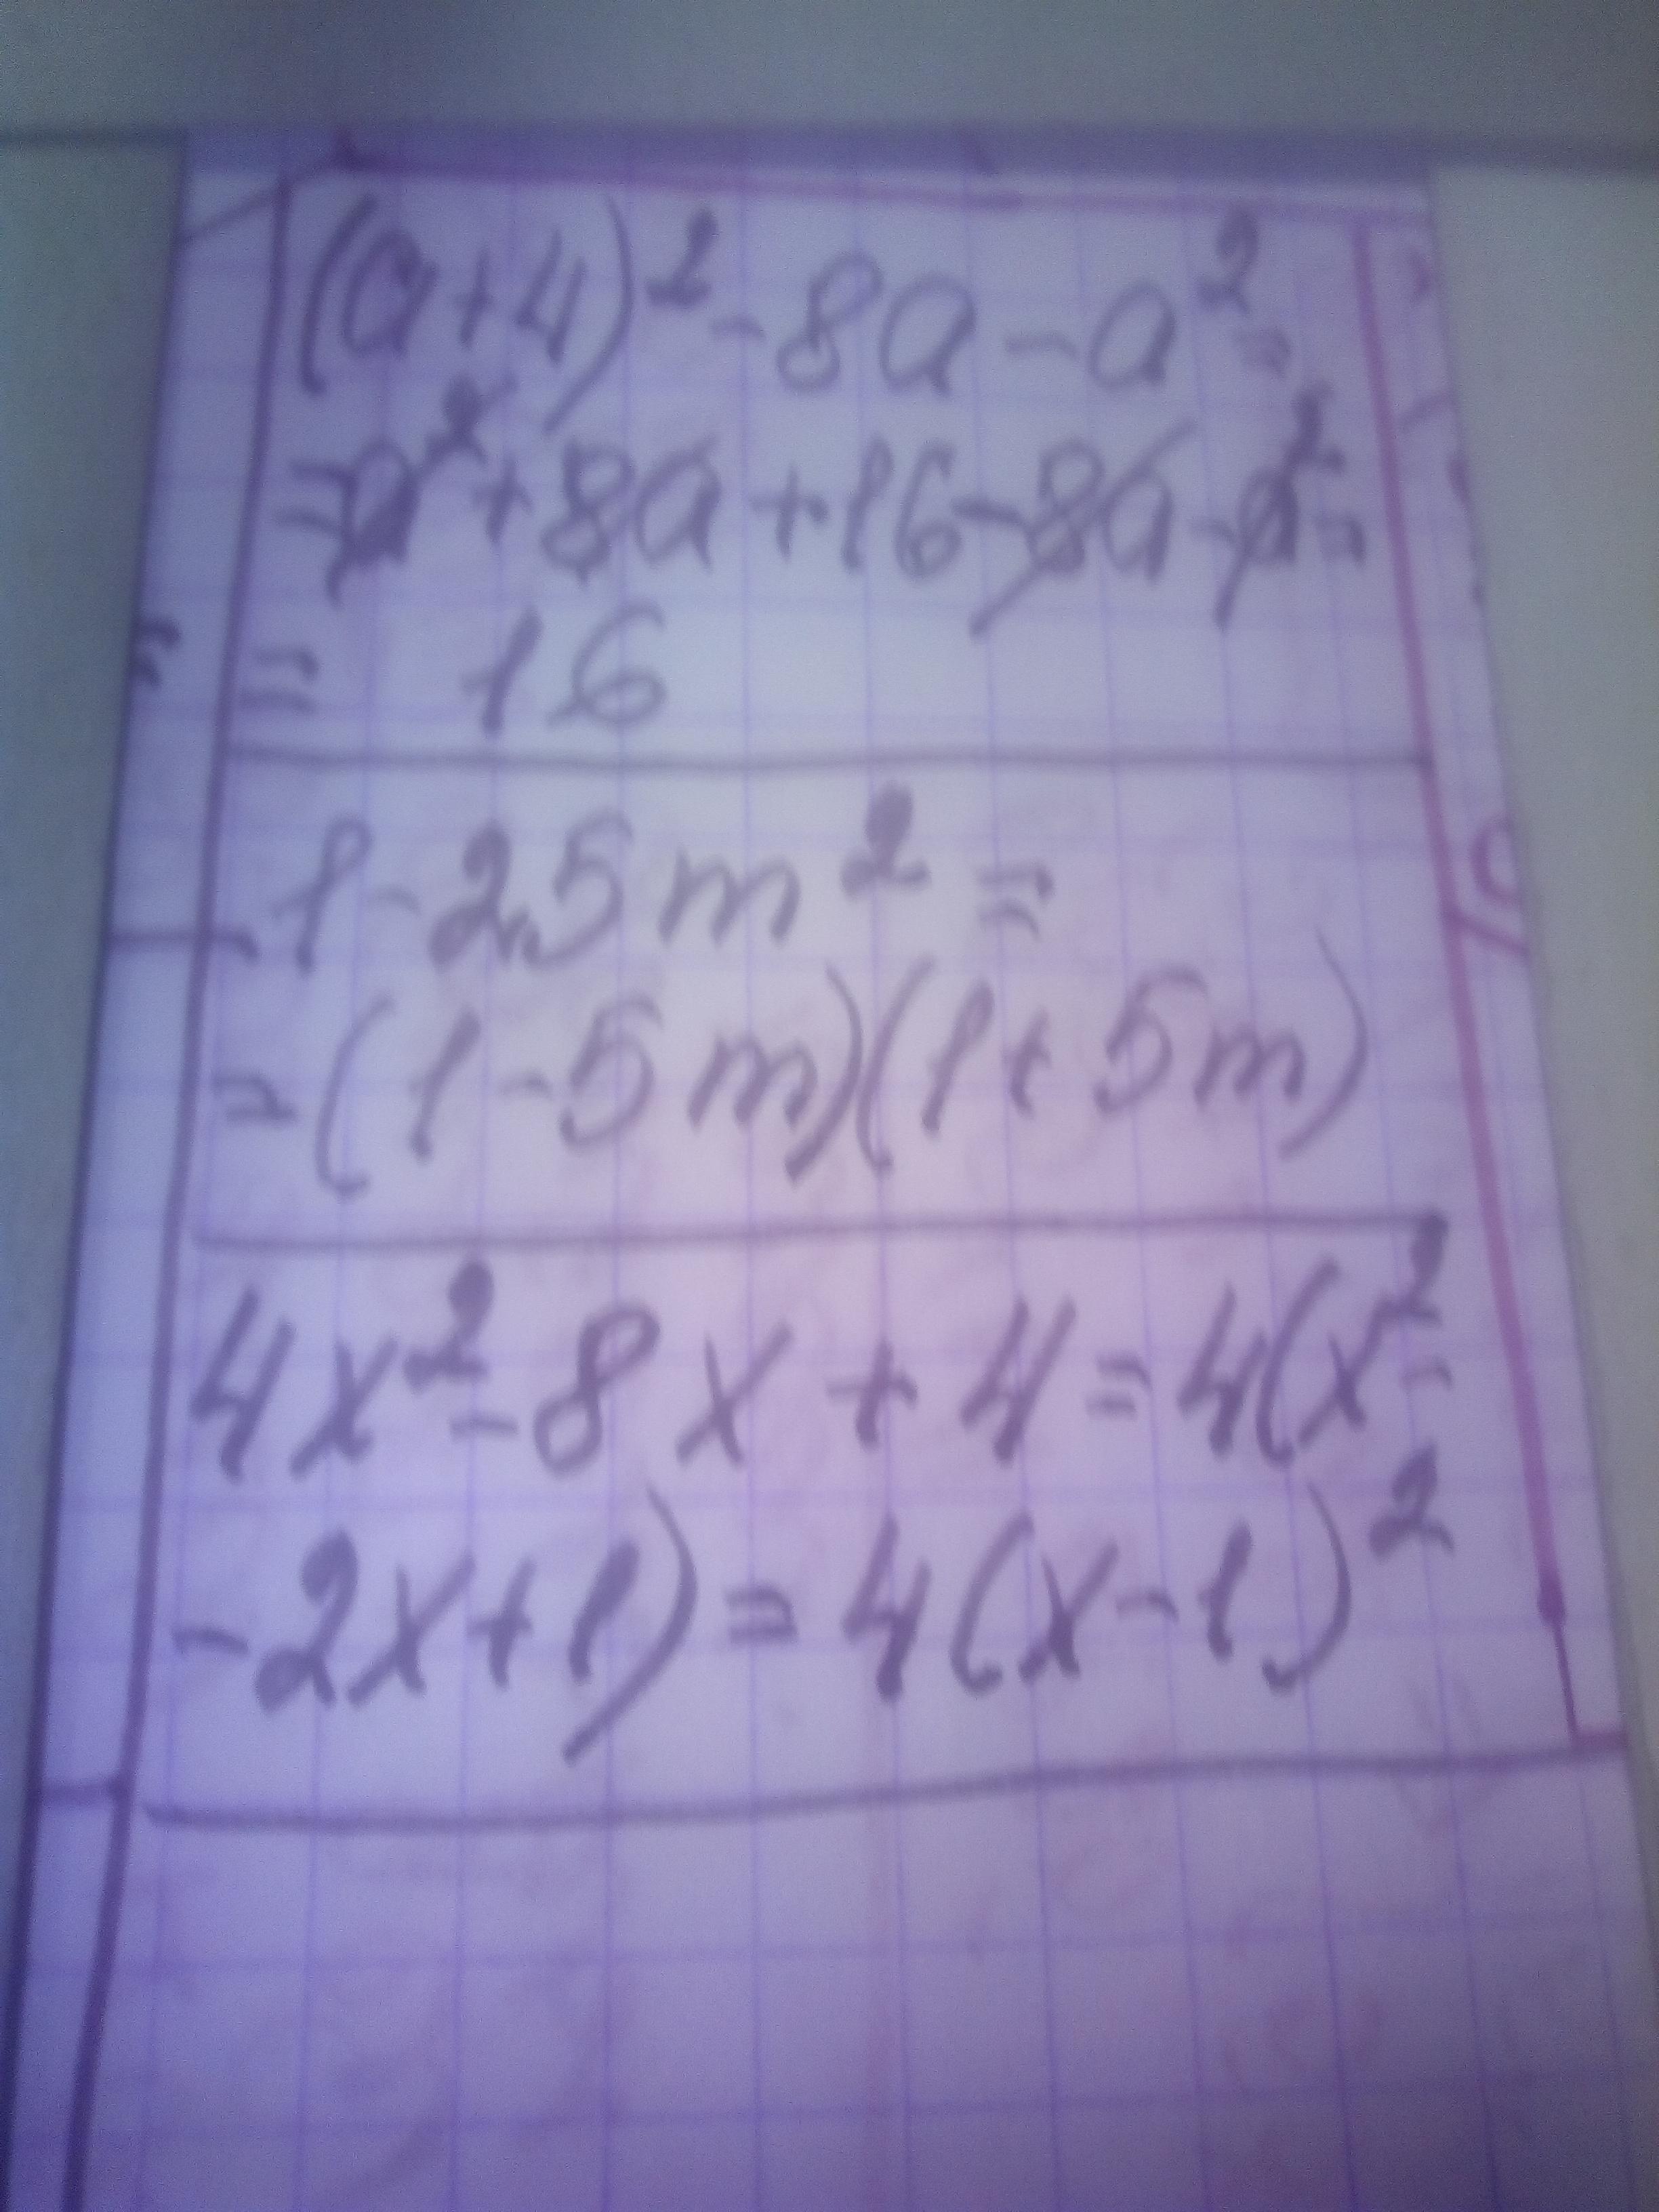 (a+4)² - 8a - a² =
= a² + 8a + 16 - 8a - a² =
= 16
1 - 25m² =
= (1 - 5m)(1 + 5m)
4x² - 8x + 4 = 4(x² -
- 2x + 1) = 4(x - 1)²